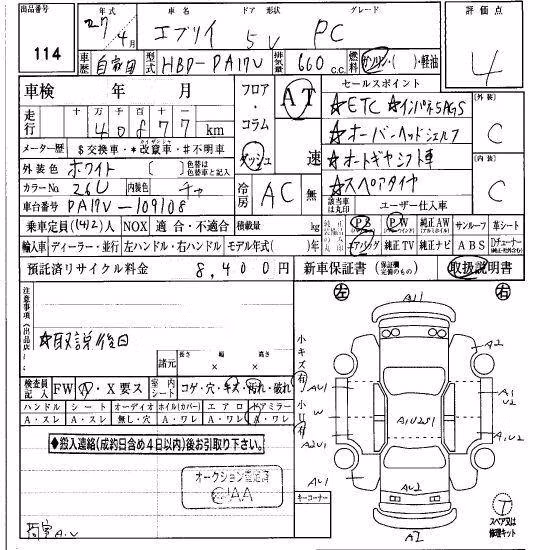 出品番号 114
年式 27年4月
車名 エブリイ ドア 形状 5V グレード PC
評価点 4
車歴 自家用 型式 HBD-DA17V 排気量 660 c.c. 燃料 ガソリン・( )・軽油
車検 年 月 フロア・コラム・ダッシュ AT 速 セールスポイント
走行 十万千百十 40877 km
☆ETC ☆インパネ5AGS
外装 C
メーター歴 $交換車・*改ざん車・#不明車
☆オーバーヘッドシェルフ
外装色 ホワイト [ ] 色替は色替車と記入
☆オートギヤシフト車
内装 C
カラーNo 26U 内装色 チャ
冷房 AC 無 ☆スペアタイヤ
車台番号 DA17V-109108
該当車は丸印 ユーザー仕入車
乗車定員 (4/2)人 NOX 適合・不適合 積載量 kg
PS PW 純正AW サンルーフ 革シート
輸入車 ディーラー・並行 左ハンドル・右ハンドル モデル年式( )年
エアバッグ 純正TV 純正ナビ ABS
預託済リサイクル料金 8,400円 新車保証書 (保証欄完備のもの) 取扱説明書
注意事項(出品店)
☆取説後日
諸元 長さ × 幅 × 高さ
検査員記入 FW・A・X要ス 室内シート コゲ・穴・キズ・汚れ・破れ
ハンドル シート オーディオ ホイル(カバー) エアロ ドアミラー
A・スレ A・スレ 無し・穴 A・ワレ A・ワレ A・ワレ
◆搬入連絡(成約日含め4日以内)後お引取り下さい。
オークション鑑定済
JAA
キーコーナー
左 右
小キズ有
小U有
AU1
A2
AU1
A1
U2
W
A1U2S1
A2U1
A1U2
AU2
A2
T
スペア又は修理キット